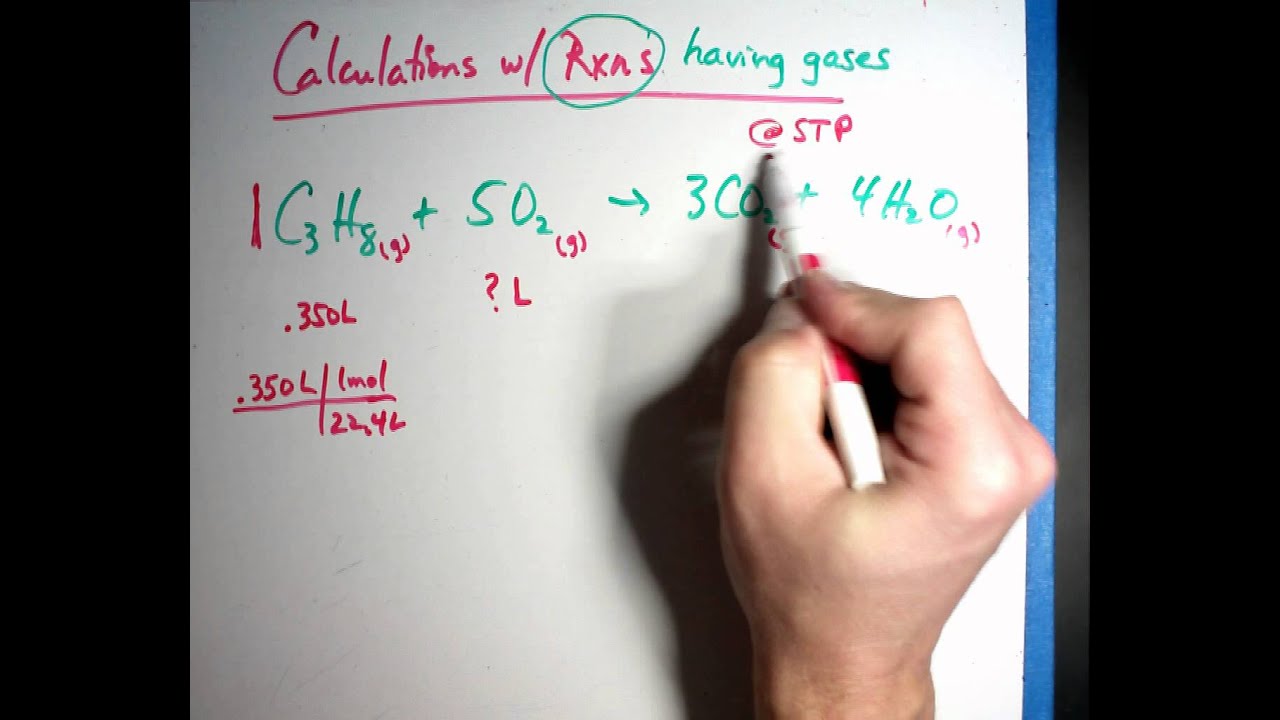 Calculations w/ Rxn's having gases
@ STP
1 C₃H₈(g) + 5O₂(g) → 3CO₂ + 4H₂O(g)
.350L ? L
.350L | 1mol
22.4L